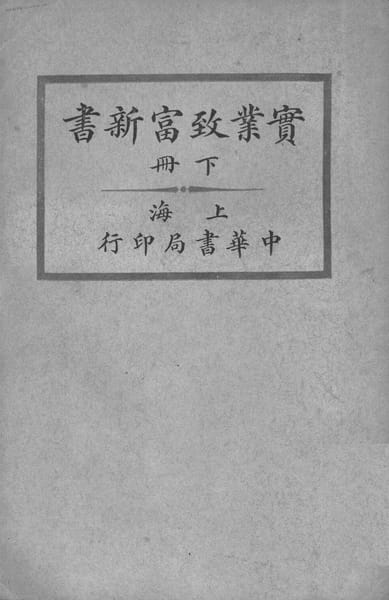 實業致富新書
下冊
上海
中華書局印行